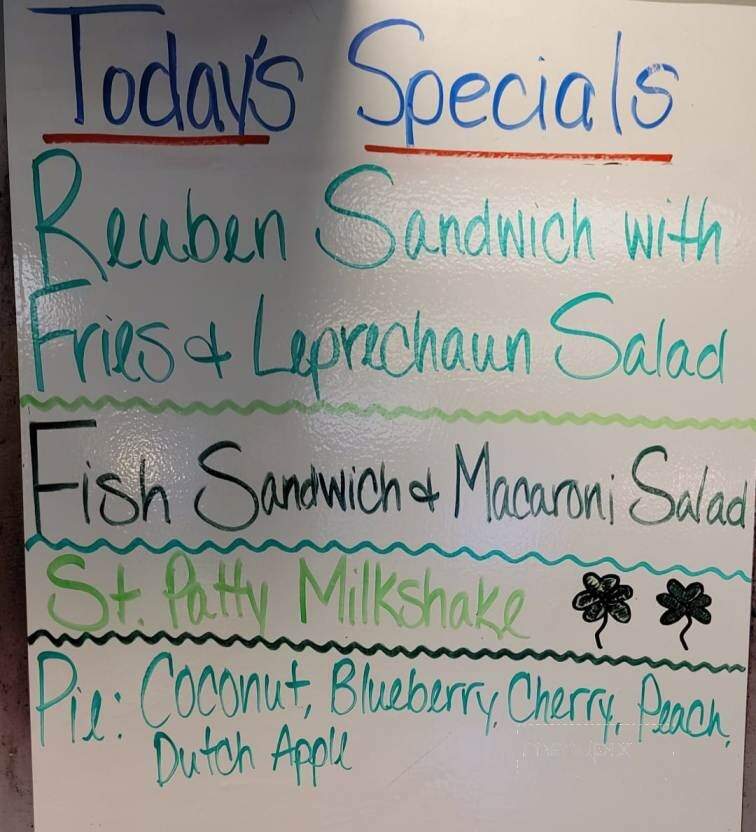 Today's Specials
Reuben Sandwich with
Fries & Leprechaun Salad
Fish Sandwich & Macaroni Salad
St. Patty Milkshake
Pie: Coconut, Blueberry, Cherry, Peach,
Dutch Apple